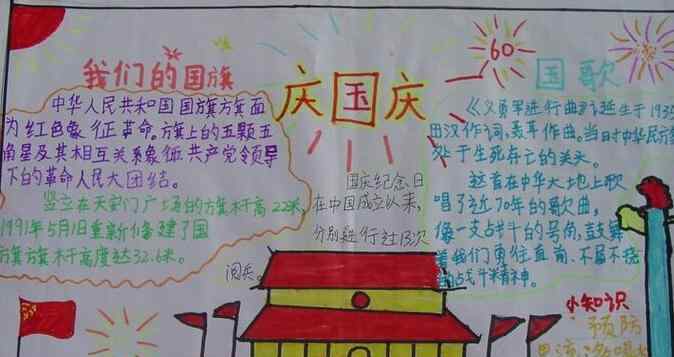 我们的国旗
中华人民共和国国旗旗面
为红色象征革命,旗上的五颗五
角星及其相互关系象征共产党领导
下的革命人民大团结。
竖立在天安门广场的旗杆高22米,
1991年5月1日重新修建了国
旗旗杆高度达32.6米。
庆国庆
国庆纪念日
在中国成立以来,
分别进行过13次
阅兵。
60
国歌
《义勇军进行曲》诞生于1935
田汉作词,聂耳作曲。当时中华民族
处于生死存亡的关头。
这首在中华大地上歌
唱了近70年的歌曲,
像一支战斗的号筒,鼓舞
着我们勇往直前、不屈不挠
的战斗精神。
小知识
预防